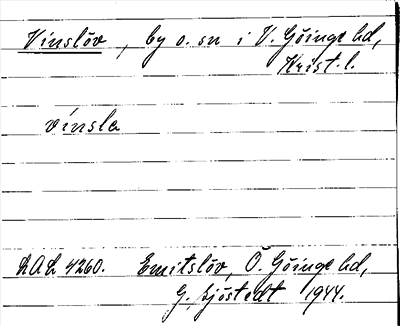 Vinslöv, by o. sn i V. Göinge hd,
Krist. l.
vínsla
LAL 4260. Emitslöv, Ö. Göinge hd,
G. Sjöstedt 1944.